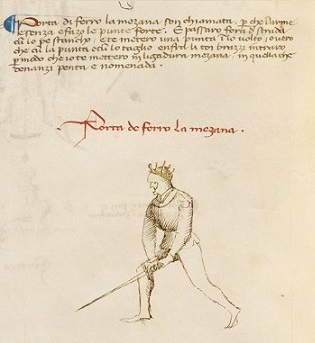 Porta di ferro la mezana son chiamata, per che l'arme
e senza e fazo le punte forte. E passaro fora di strada
cu lo pe stancho, e te metero una punta i lo volto, o vero
che cu la punta e cu lo taglio enfra li toi brazzi intraro
per modo che io te mettero in ligadura mezana, in quella che
denanzi ponta e nomenada.
Porta de ferro la mezana.